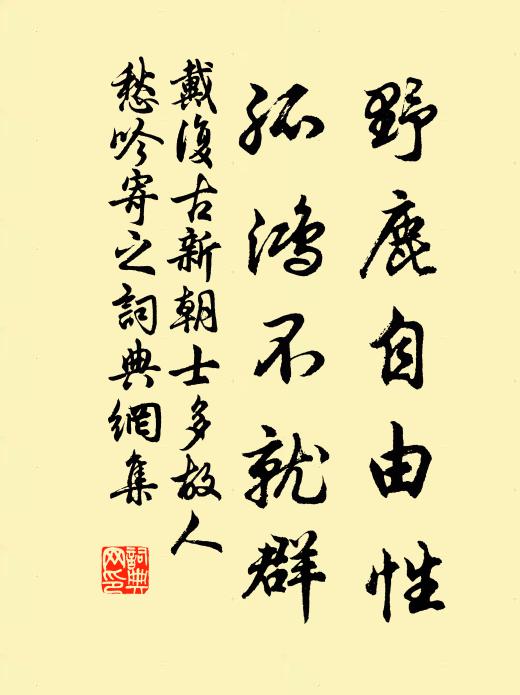 野鹿自由性
孤鴻不就群
戴復古新朝士多故人
愁吟寄之詞典網集
詞典
网印